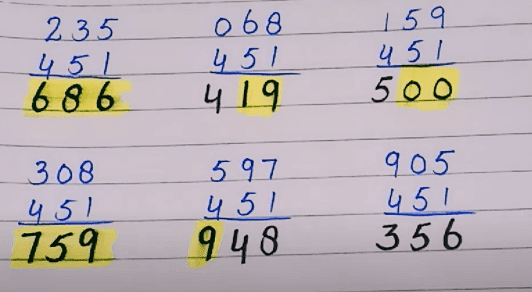 235 068 159
451 451 451
686 419 500
308 597 905
451 451 451
759 948 356